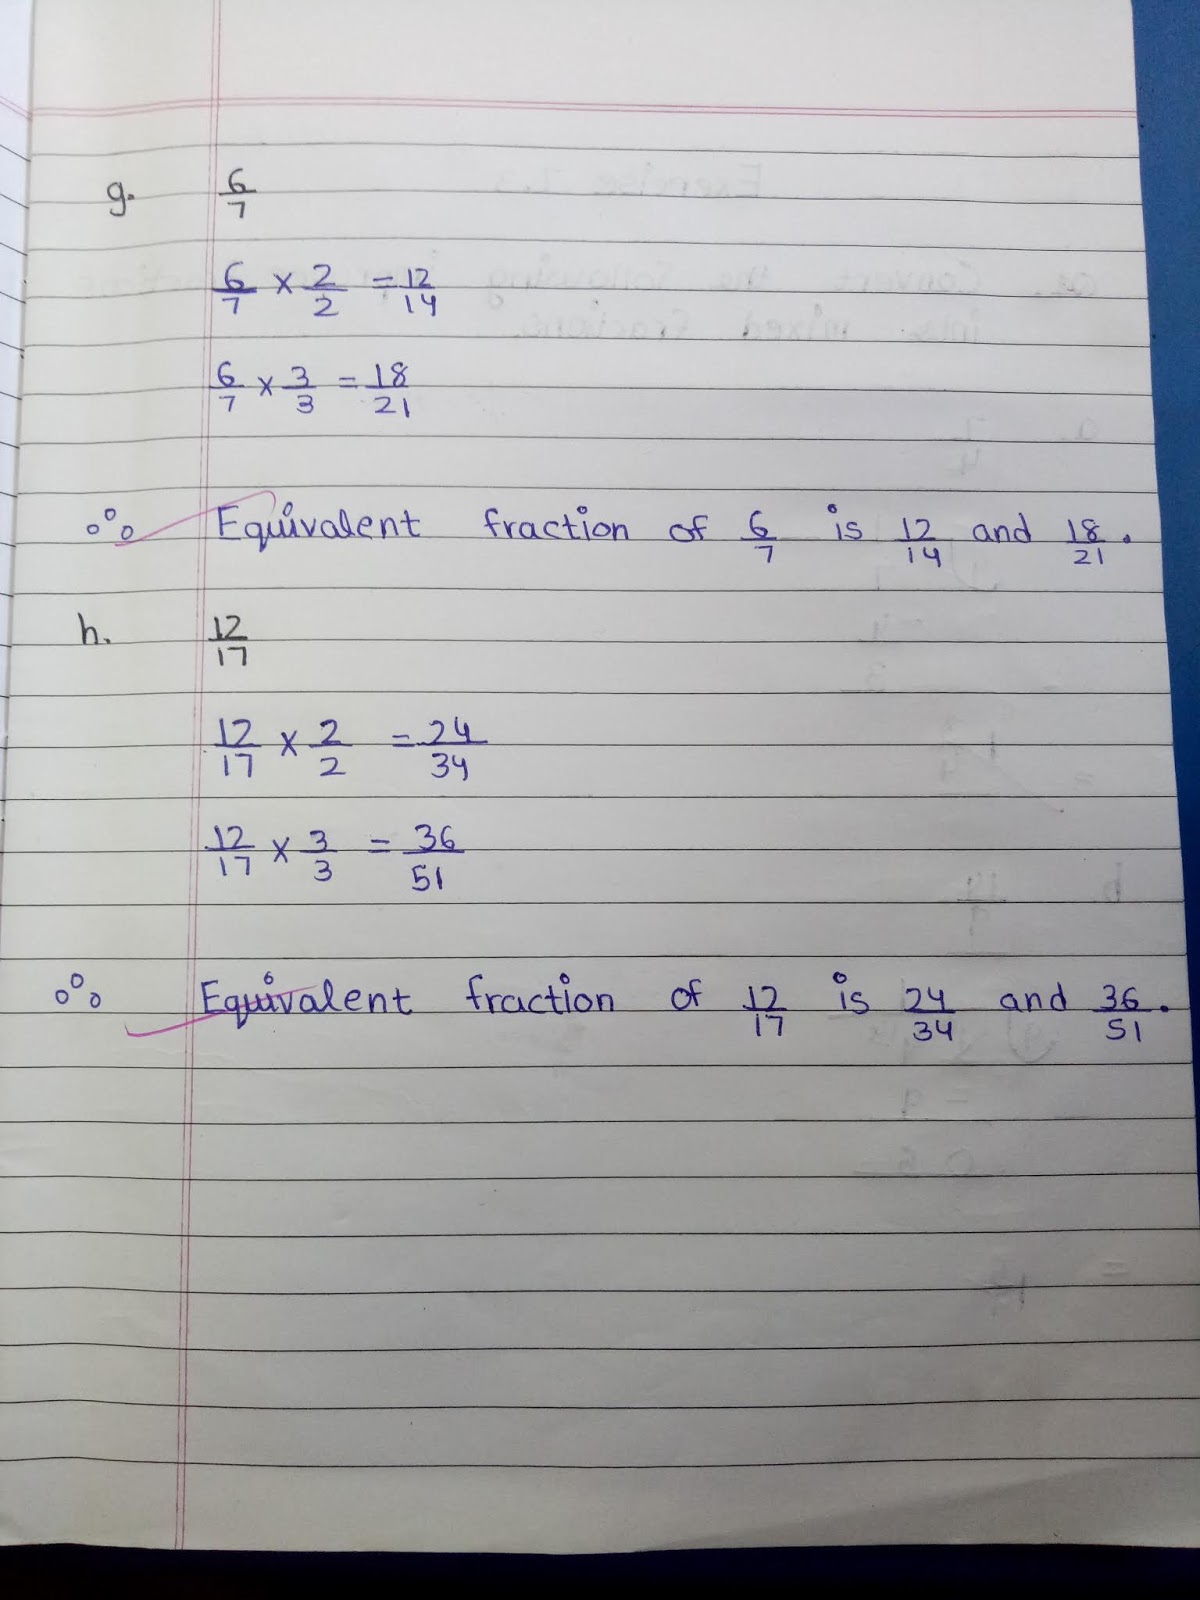 g. 6/7
6/7 × 2/2 = 12/14
6/7 × 3/3 = 18/21
∴ Equivalent fraction of 6/7 is 12/14 and 18/21.
h. 12/17
12/17 × 2/2 = 24/34
12/17 × 3/3 = 36/51
∴ Equivalent fraction of 12/17 is 24/34 and 36/51.